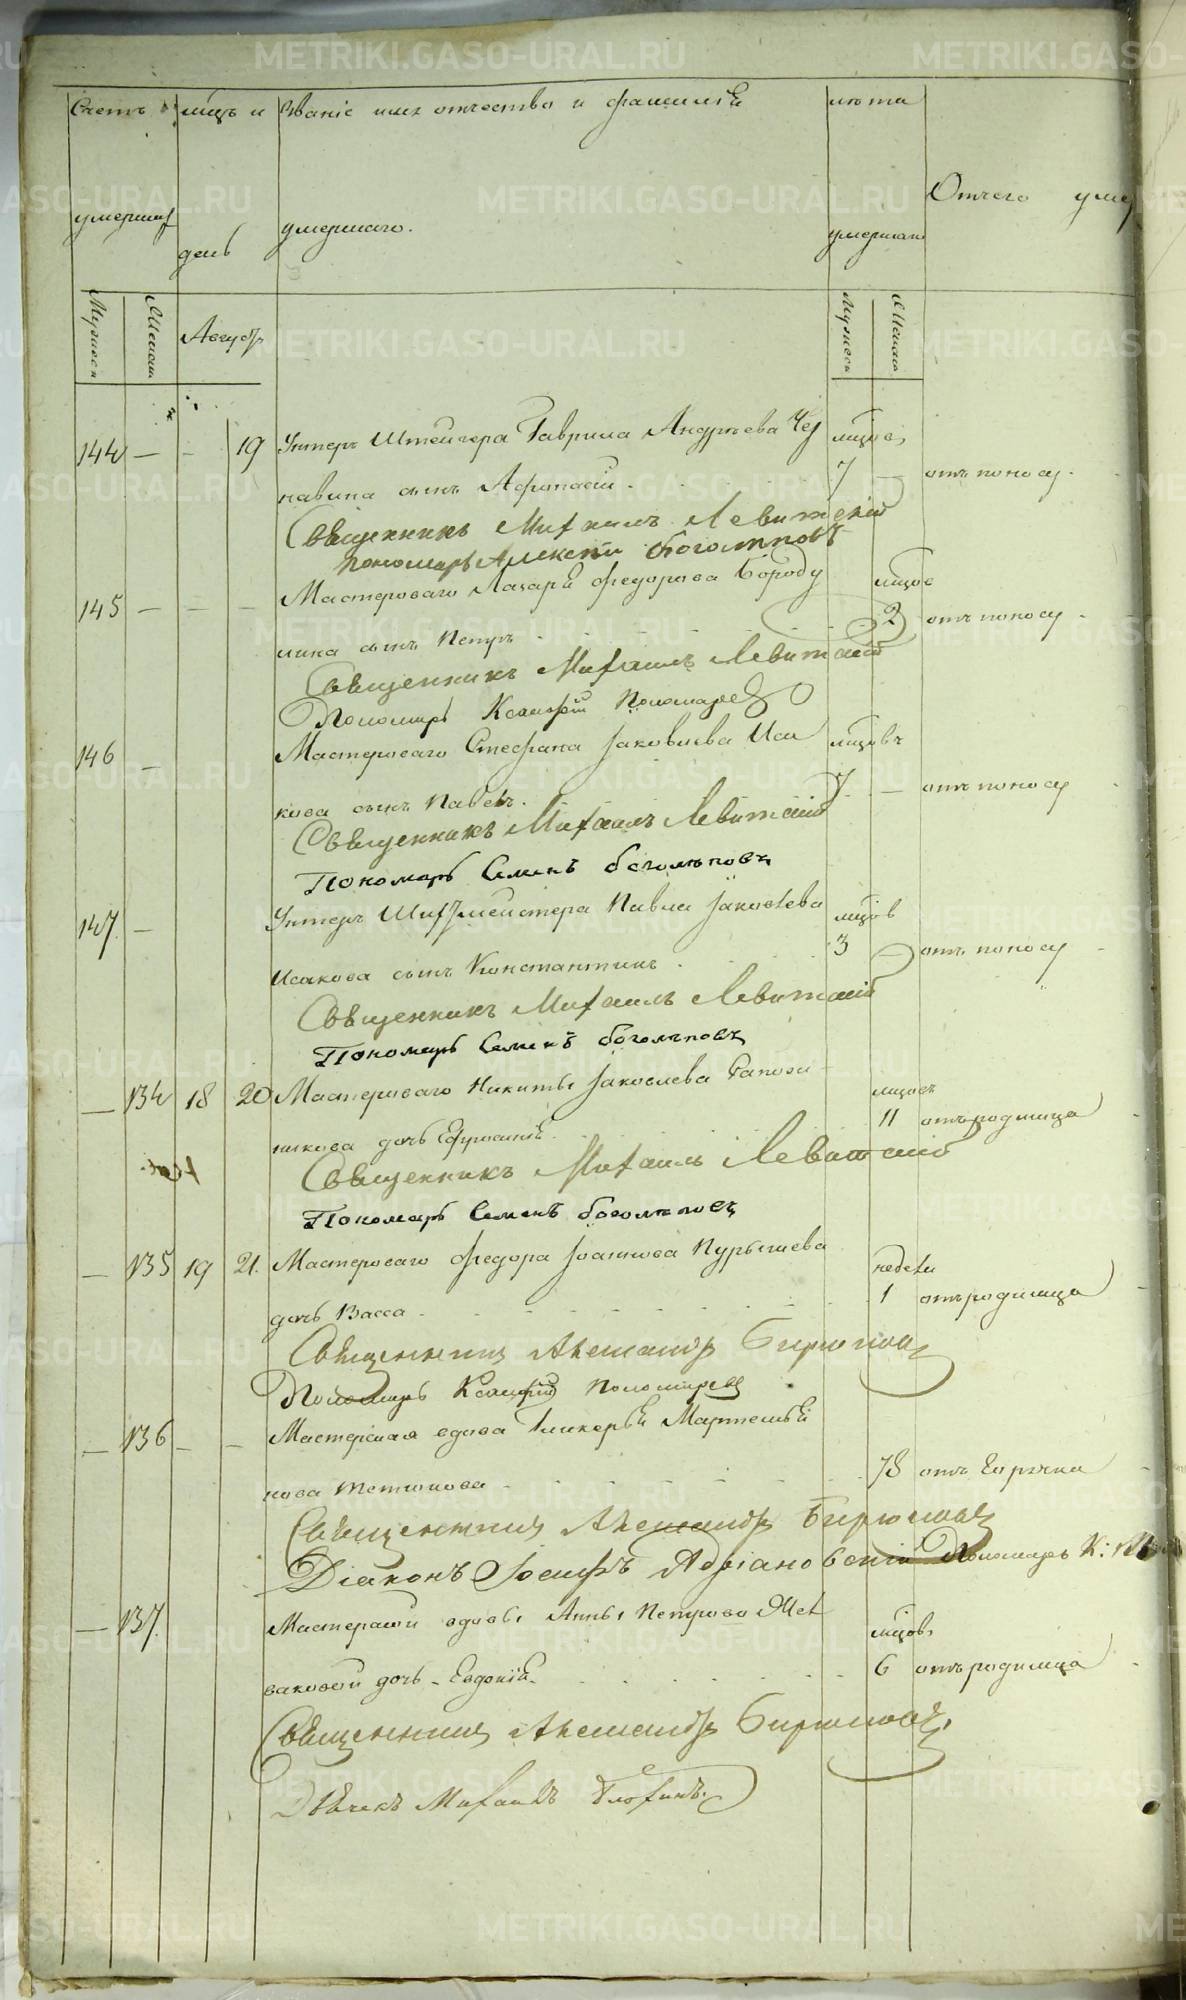 Счетъ
мцъ и
Званіе имя отчество и фамилій
лѣта
умершихъ
день
умершаго.
умершаго
Отчего
Мужеск
Женск
Августъ
Мужеск
Женск
144 — - 19 Унтеръ Штейгера Гаврила Андреева Чер мцовъ
навина сынъ Афонасій 7 — отъ поносу
Священникъ Михаилъ Левитскій
пономарь Алексѣй боголѣповъ
145 — — — Мастероваго Лазаря Федорова Бороду мцов
лина сынъ Петръ 2 отъ поносу
Священникъ Михаилъ Левитскій
Пономарь Пономаревъ
146 — Мастероваго Стефана Іаковлева Иса мцовъ
кова сынъ Павелъ. 7 — отъ поносу
Священникъ Михаилъ Левитскій
Пономарь Семенъ боголѣповъ
147. — Унтеръ Шихтмейстера Павла Іаковлева мцов
Исакова сынъ Константинъ 3 — отъ поносу
Священникъ Михаилъ Левитскій
Пономарь Семенъ боголѣповъ
— 134 18 20 Мастероваго Никиты Іаковлева Сапож мцовъ
никова дочь 11 отъ родимца
Священникъ Михаилъ Левитскій
Пономарь Семенъ боголѣповъ
— 135 19 21. Мастероваго Федора Іоаннова недели
дочь Васса 1 отъ родимца
Священникъ Александръ Бирюковъ
Пономарь Пономаревъ
— 136 — — Мастерская вдова Гликерья
78 отъ
Священникъ Александръ Бирюковъ
Діаконъ Іосифъ Адріановскій Пономарь К:
— 137. Мастерской вдовы Анны Петрово мцовъ
ваковой дочь Евдокія 6 отъ родимца
Священникъ Александръ Бирюковъ
Дьячекъ Михаилъ
METRIKI.GASO-URAL.RU